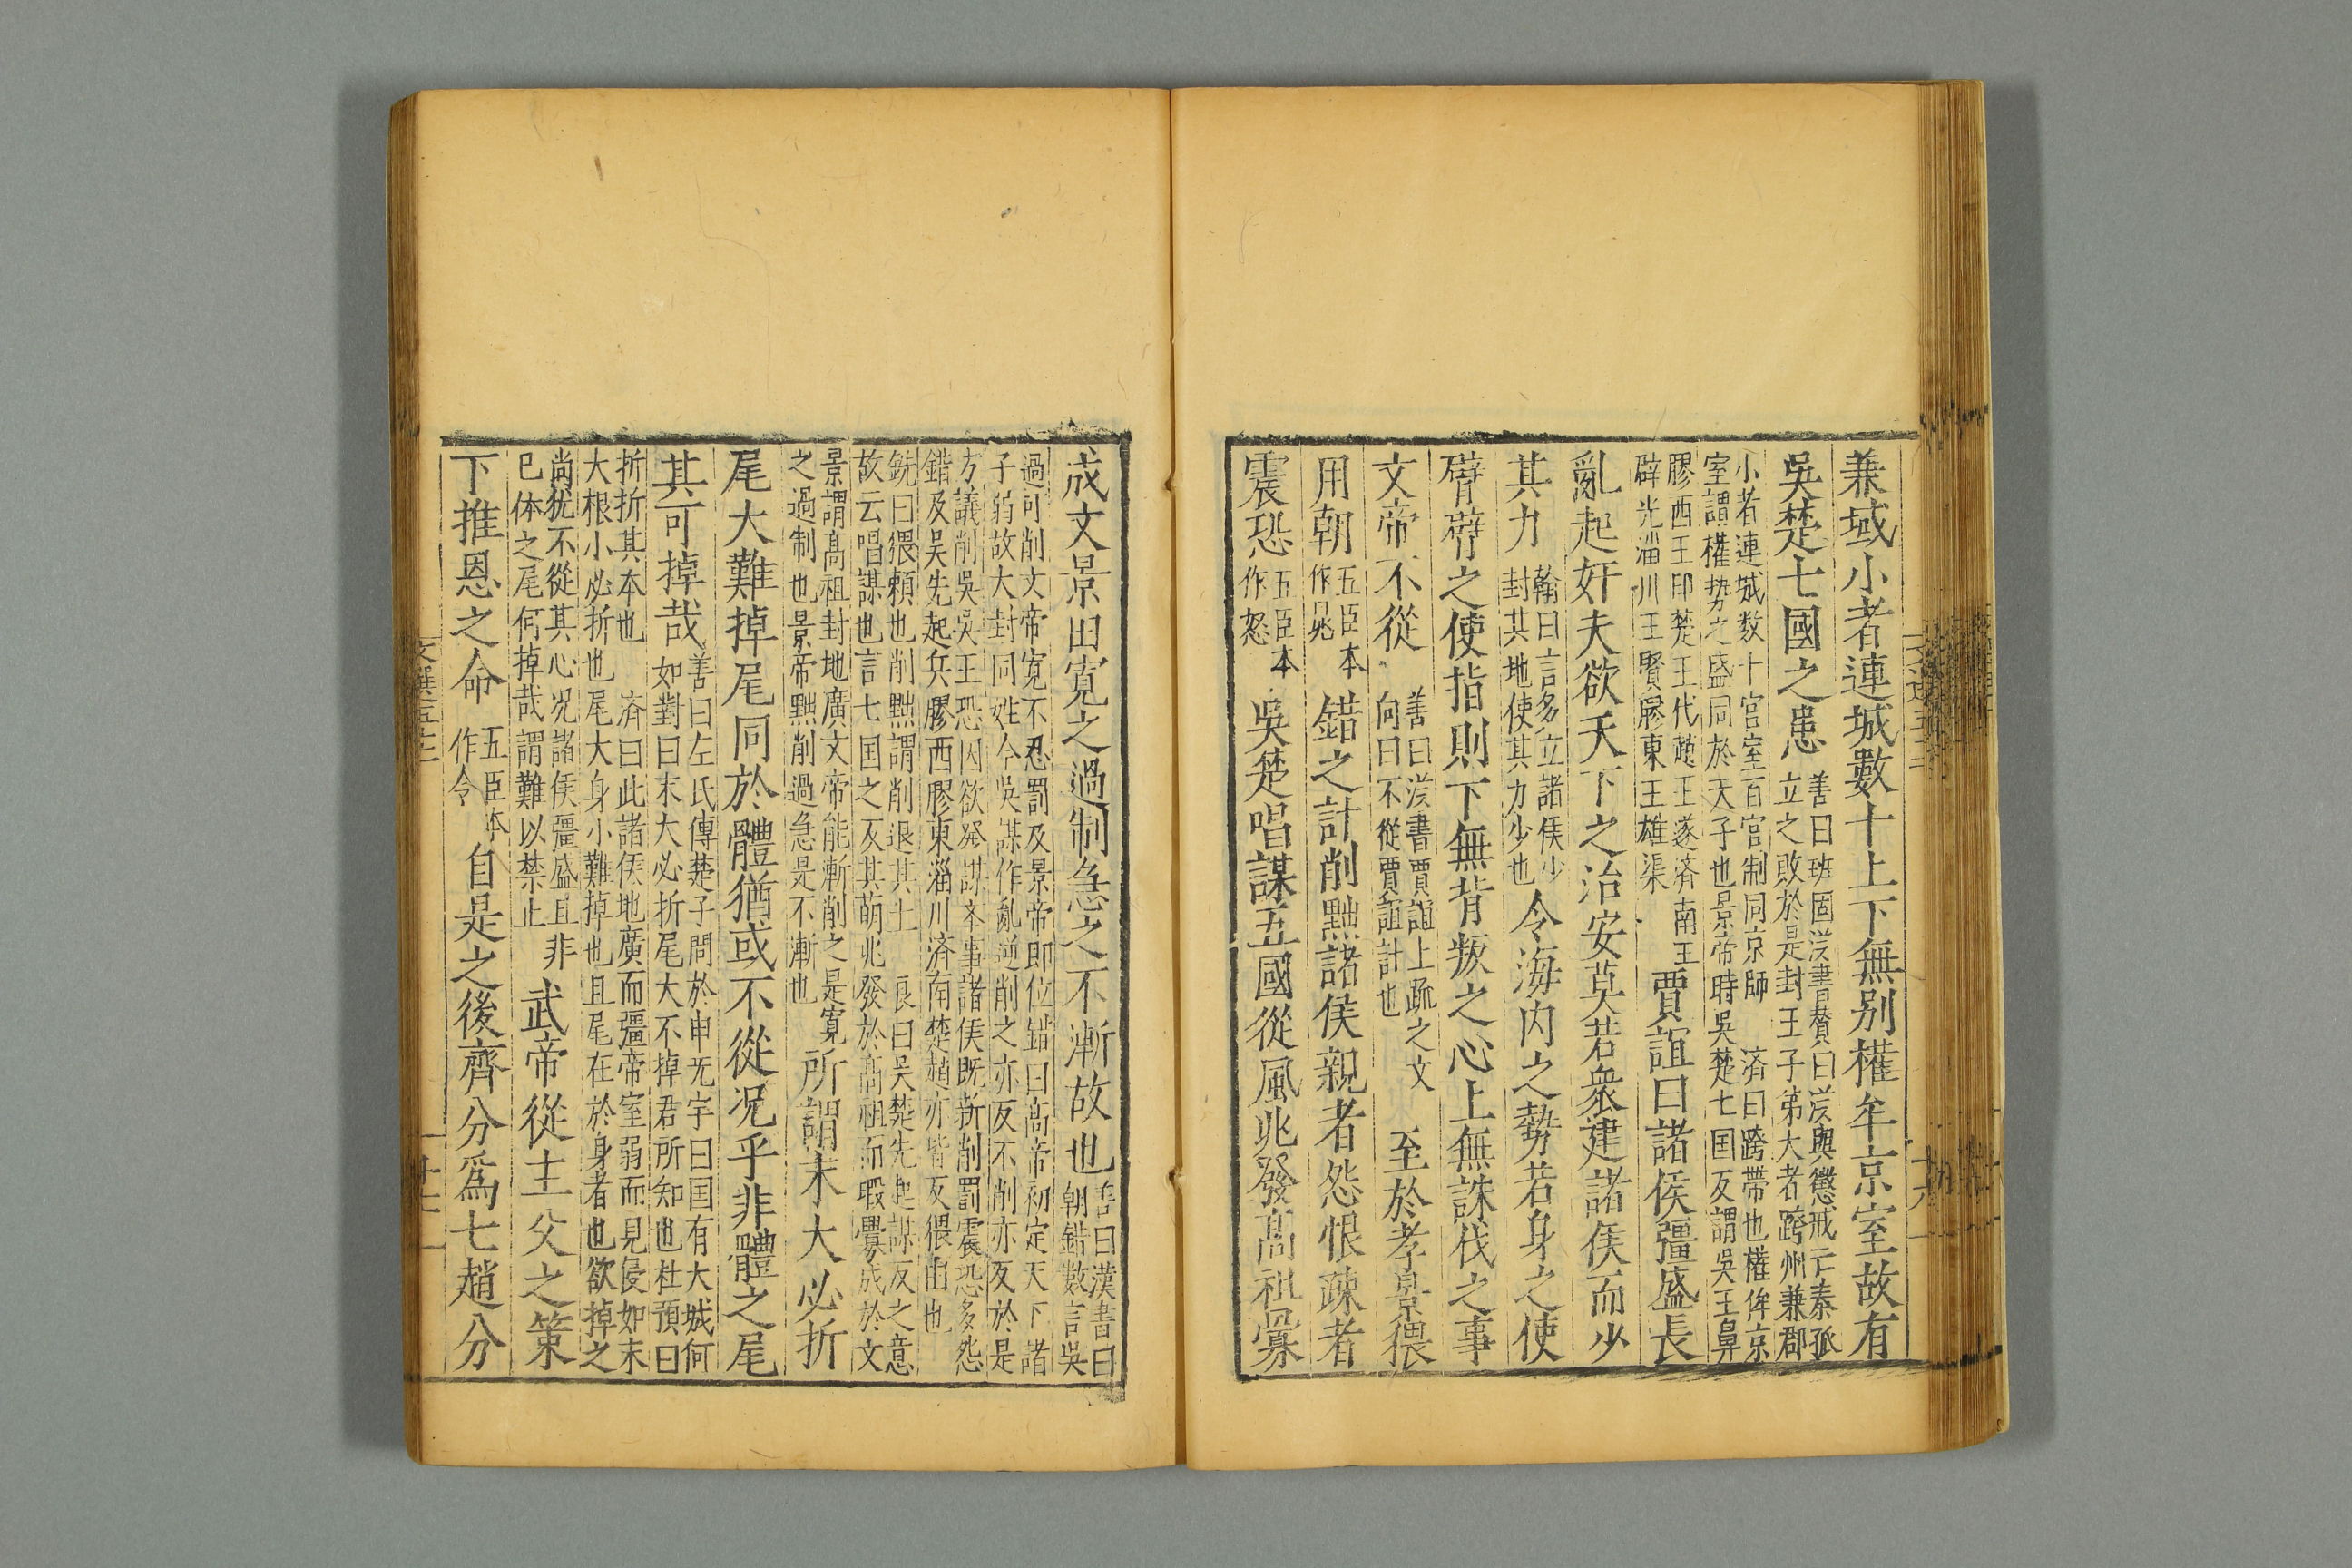 兼域小者連城數十上下無别權牟京室故有
吳楚七國之患善曰班固漢書賛曰漢興懲戒亡秦孤
立之敗於是封王子弟大者跨州兼郡
小者連城数十宫室百官制同京師 済曰跨帶也權侔京
室謂權势之盛同於天子也景帝時吳楚七国反謂吳王鼻
膠西王卬楚王代趙王遂済南王
辟光淄川王賢膠東王雄渠賈誼曰諸侯彊盛長
亂起奸夫欲天下之治安莫若衆建諸侯而少
其力翰曰言多立諸侯少
封其地使其力少也令海内之勢若身之使
臂臂之使指則下無背叛之心上無誅伐之事
文帝不從善曰漢書賈誼上疏之文
向曰不從賈誼計也至於孝景猥
用朝五臣本
作晁錯之計削黜諸侯親者怨恨疎者
震恐五臣本
作怒吳楚唱謀五國從風兆發高祖釁
成文景由寛之過制急之不漸故也善曰漢書曰
朝錯數言吳
過可削文帝寛不忍罰及景帝即位錯曰高帝初定天下諸
子弱故大封同姓今吳謀作亂逆削之亦反不削亦反於是
方議削吳吳王恐因欲發謀本事諸侯既新削罰震恐多怨
錯及吴先起兵膠西膠東淄川済南楚趙亦皆反猥由也
銑曰猥頼也削黜謂削退其土 良曰吴楚先起謀反之意
故云唱謀也言七国之反其萌兆發於髙祖而瑕釁成於文
景謂髙祖封地廣文帝能漸削之是寛
之過制也景帝黜削過急是不漸也所謂末大必折
尾大難掉尾同於體猶或不從况乎非體之尾
其可掉哉善曰左氏傳楚子問於申无宇曰国有大城何
如對曰末大必折尾大不掉君所知也杜預曰
折折其本也 済曰此諸侯地廣而彊帝室弱而見侵如末
大根小必折也尾大身小難掉也且尾在於身者也欲掉之
尚犹不從其心况諸侯彊盛且非
已体之尾何掉哉謂難以禁止武帝從主父之策
下推恩之命五臣本
作令自是之後齊分爲七趙分